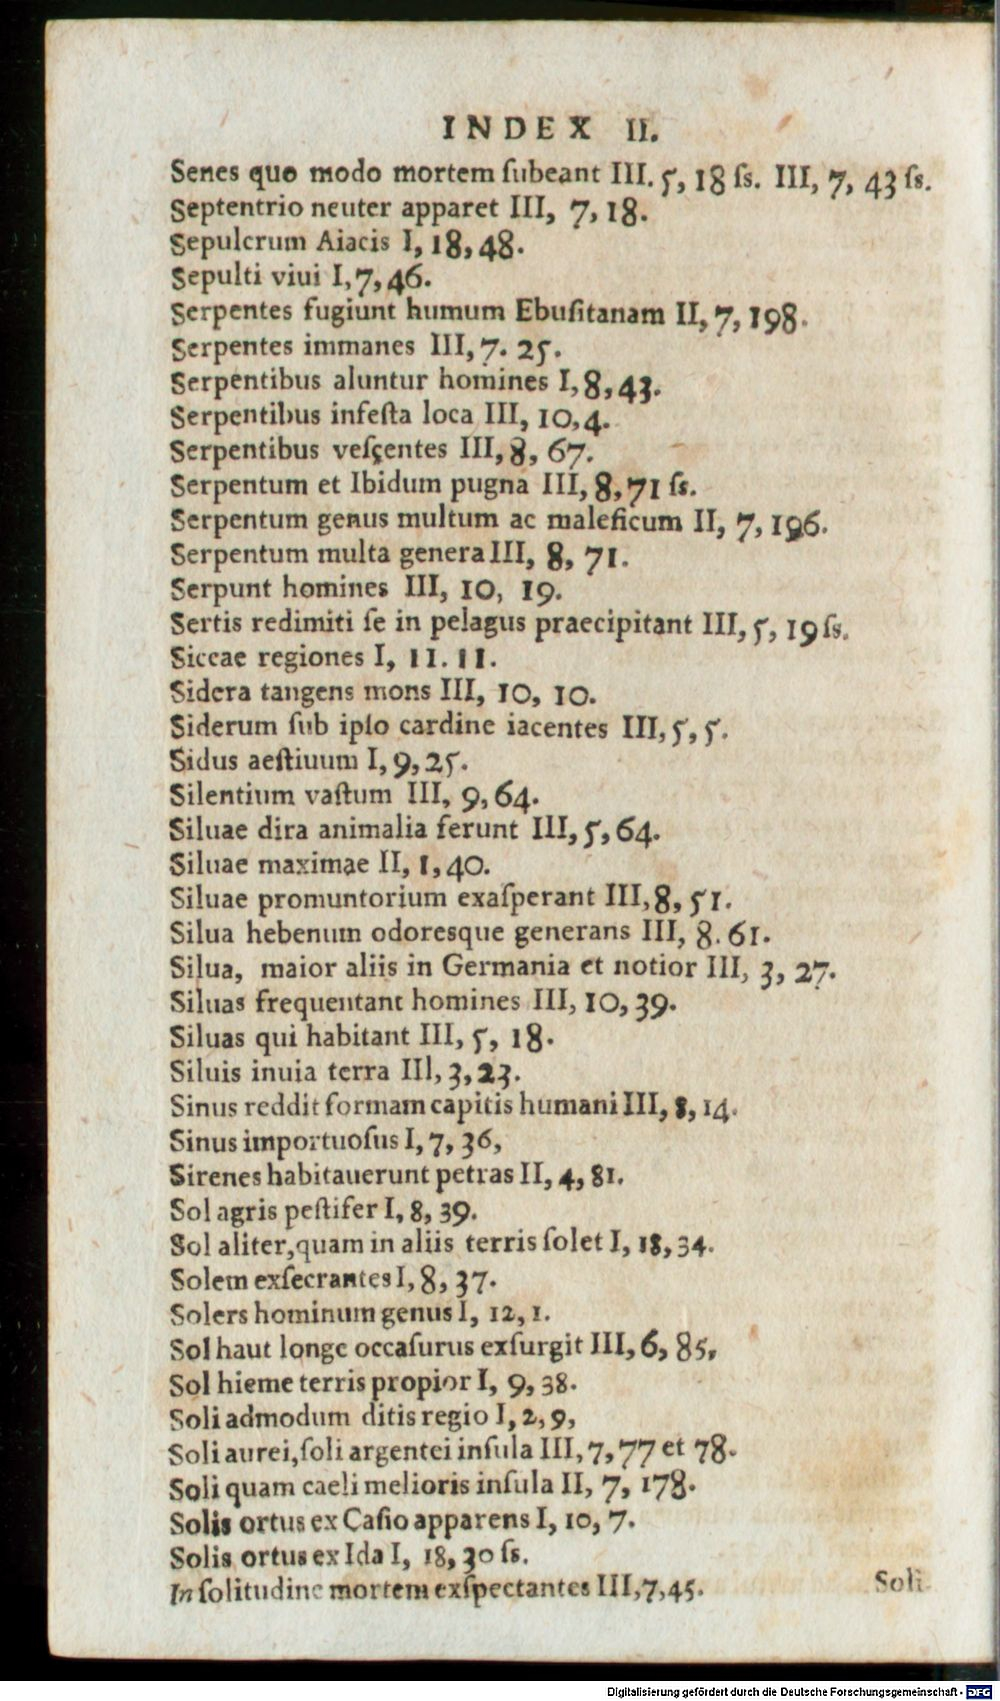 INDEX II.
Senes quo modo mortem ſubeant III. 5, 18 ſs. III, 7, 43 ſs.
Septentrio neuter apparet III, 7, 18.
Sepulcrum Aiacis I, 18, 48.
Sepulti viui I, 7, 46.
Serpentes fugiunt humum Ebuſitanam II, 7, 198.
Serpentes immanes III, 7. 25.
Serpentibus aluntur homines I, 8, 43.
Serpentibus infeſta loca III, 10, 4.
Serpentibus veſçentes III, 8, 67.
Serpentum et Ibidum pugna III, 8, 71 ſs.
Serpentum genus multum ac maleficum II, 7, 196.
Serpentum multa genera III, 8, 71.
Serpunt homines III, 10, 19.
Sertis redimiti ſe in pelagus praecipitant III, 5, 19 ſs.
Siccae regiones I, 11. 11.
Sidera tangens mons III, 10, 10.
Siderum ſub ipſo cardine iacentes III, 5, 5.
Sidus aeſtiuum I, 9, 25.
Silentium vaſtum III, 9, 64.
Siluae dira animalia ferunt III, 5, 64.
Siluae maximae II, 1, 40.
Siluae promuntorium exaſperant III, 8, 51.
Silua hebenum odoresque generans III, 8. 61.
Silua, maior aliis in Germania et notior III, 3, 27.
Siluas frequentant homines III, 10, 39.
Siluas qui habitant III, 5, 18.
Siluis inuia terra III, 3, 23.
Sinus reddit formam capitis humani III, 8, 14.
Sinus importuoſus I, 7, 36,
Sirenes habitauerunt petras II, 4, 81.
Sol agris peſtifer I, 8, 39.
Sol aliter, quam in aliis terris ſolet I, 18, 34.
Solem exſecrantes I, 8, 37.
Solers hominum genus I, 12, 1.
Sol haut longe occaſurus exſurgit III, 6, 85,
Sol hieme terris propior I, 9, 38.
Soli admodum ditis regio I, 2, 9,
Soli aurei, ſoli argentei inſula III, 7, 77 et 78.
Soli quam caeli melioris inſula II, 7, 178.
Solis ortus ex Caſio apparens I, 10, 7.
Solis ortus ex Ida I, 18, 30 ſs.
In ſolitudine mortem exſpectantes III, 7, 45.
Soli
Digitalisierung gefördert durch die Deutsche Forschungsgemeinschaft - DFG